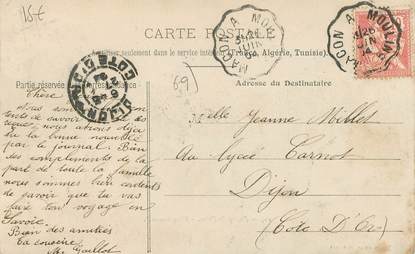 18€
CARTE POSTALE
seulement dans le service intérieur
Algérie, Tunisie).
Partie réservée
Adresse du Destinataire
69
MACON A MOULINS
MACON A MOULINS
26
JUIN
04
DIJON
COTE D'OR
Chère
nous sommes
tents de savoir
nous avons déjà
lu la bonne nouvelle
par le journal. Bien
des compliments de la
part de toute la famille
nous sommes bien contents
de savoir que tu vas
faire ton voyage en
Savoie.
Bien des amitiés
Ta cousine
M. Gaillot
Melle Jeanne Millot
au lycée Carnot
Dijon
(Côte D'Or)